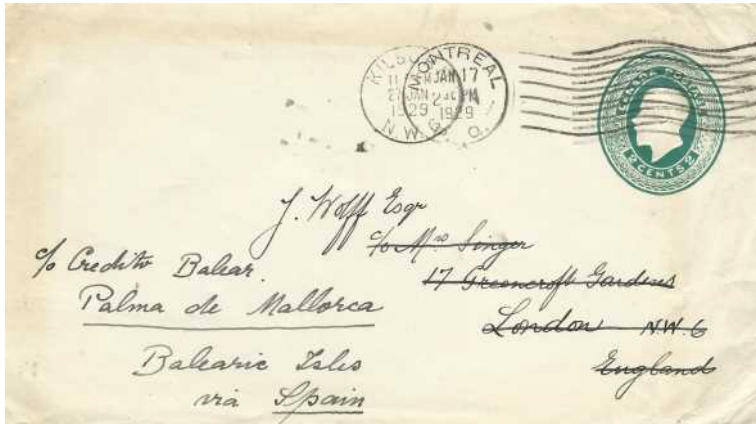 KILBURN
11 AM
27 JAN
1929
N.W.6.
MONTREAL
JAN 17
2 PM
1929
Q.
CANADA POSTAGE
2 CENTS 2
J. Wolff Esqr
c/o Mrs Singer
17 Greencroft Gardens
London N.W.6
England
c/o Credito Balear.
Palma de Mallorca
Balearic Isles
via Spain